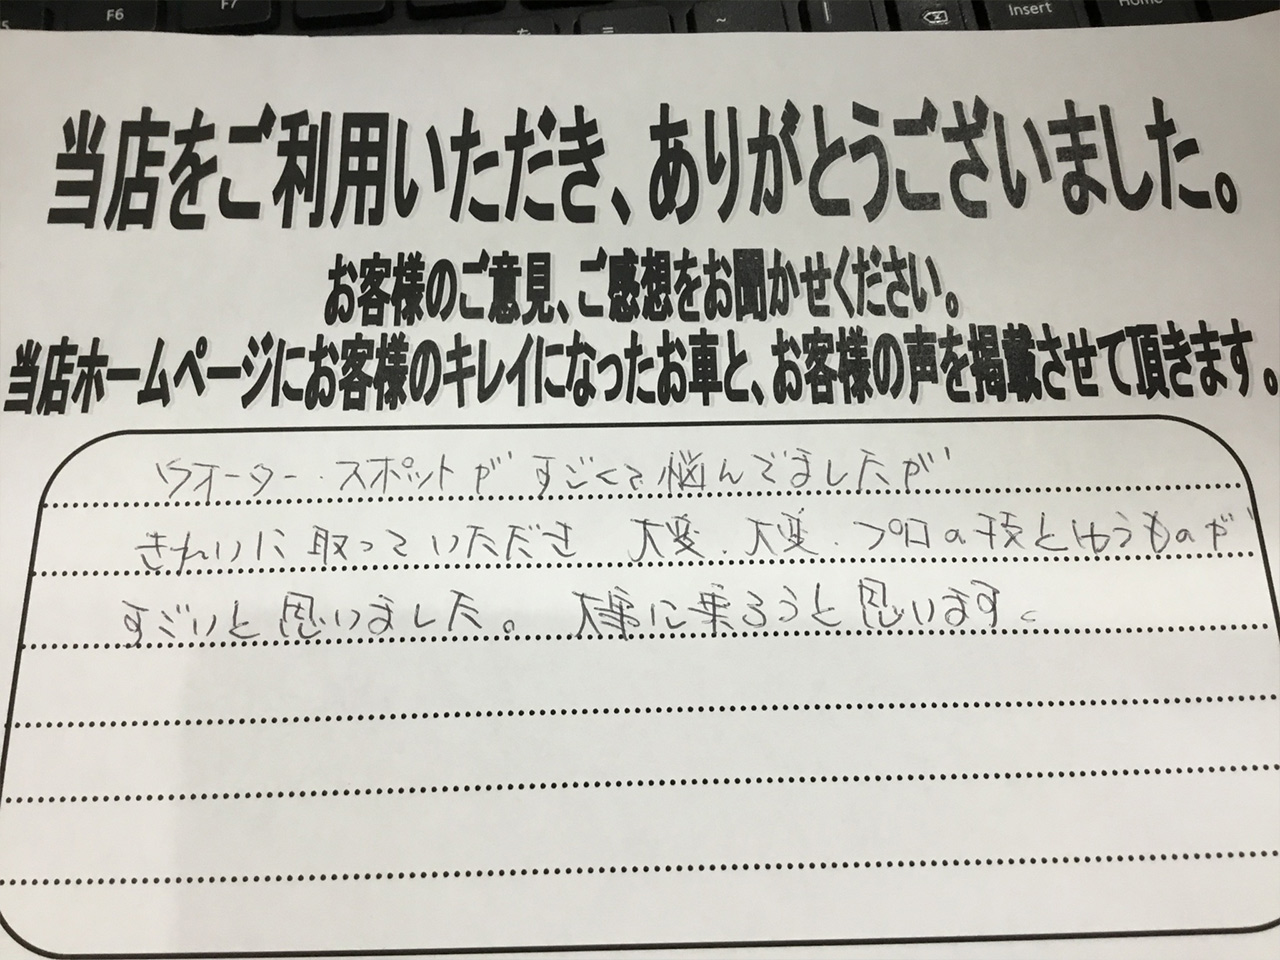 F6
F7
Insert
Home
当店をご利用いただき、ありがとうございました。
お客様のご意見、ご感想をお聞かせください。
当店ホームページにお客様のキレイになったお車と、お客様の声を掲載させて頂きます。
ウオーター・スポットがすごくて悩んでましたが
きれいに取っていただき 大変、大変、プロの技とゆうものが
すごいと思いました。 大事に乗ろうと思います。